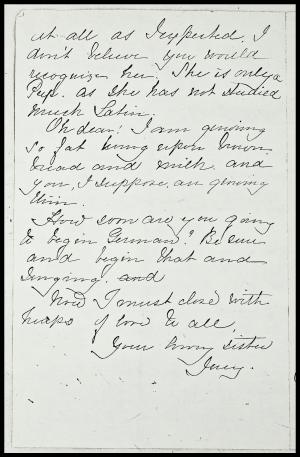 at all as I expected. I
don't believe you would
recognize her. She is only a
Prep. as she has not studied
much Latin.
Oh dear! I am growing
so fat living upon brown
bread and milk and
you, I suppose, are growing
thin.
How soon are you going
to begin German? Be sure
and begin that and
singing. and
Now I must close with
heaps of love to all,
Your loving sister